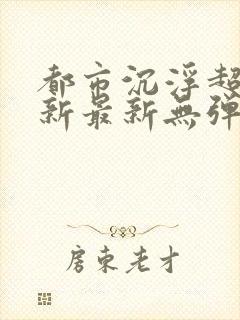 都市沉浮超
新最新無弹
房東老才